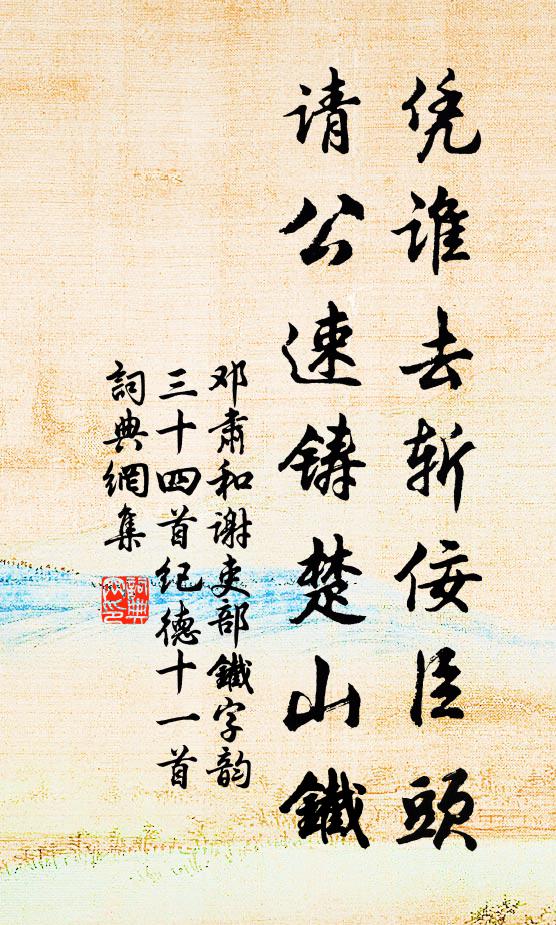 凭谁去斩佞臣頭
请公速铸楚山鐵
邓肃和谢吏部鐵字韵
三十四首纪德十一首
詞典網集